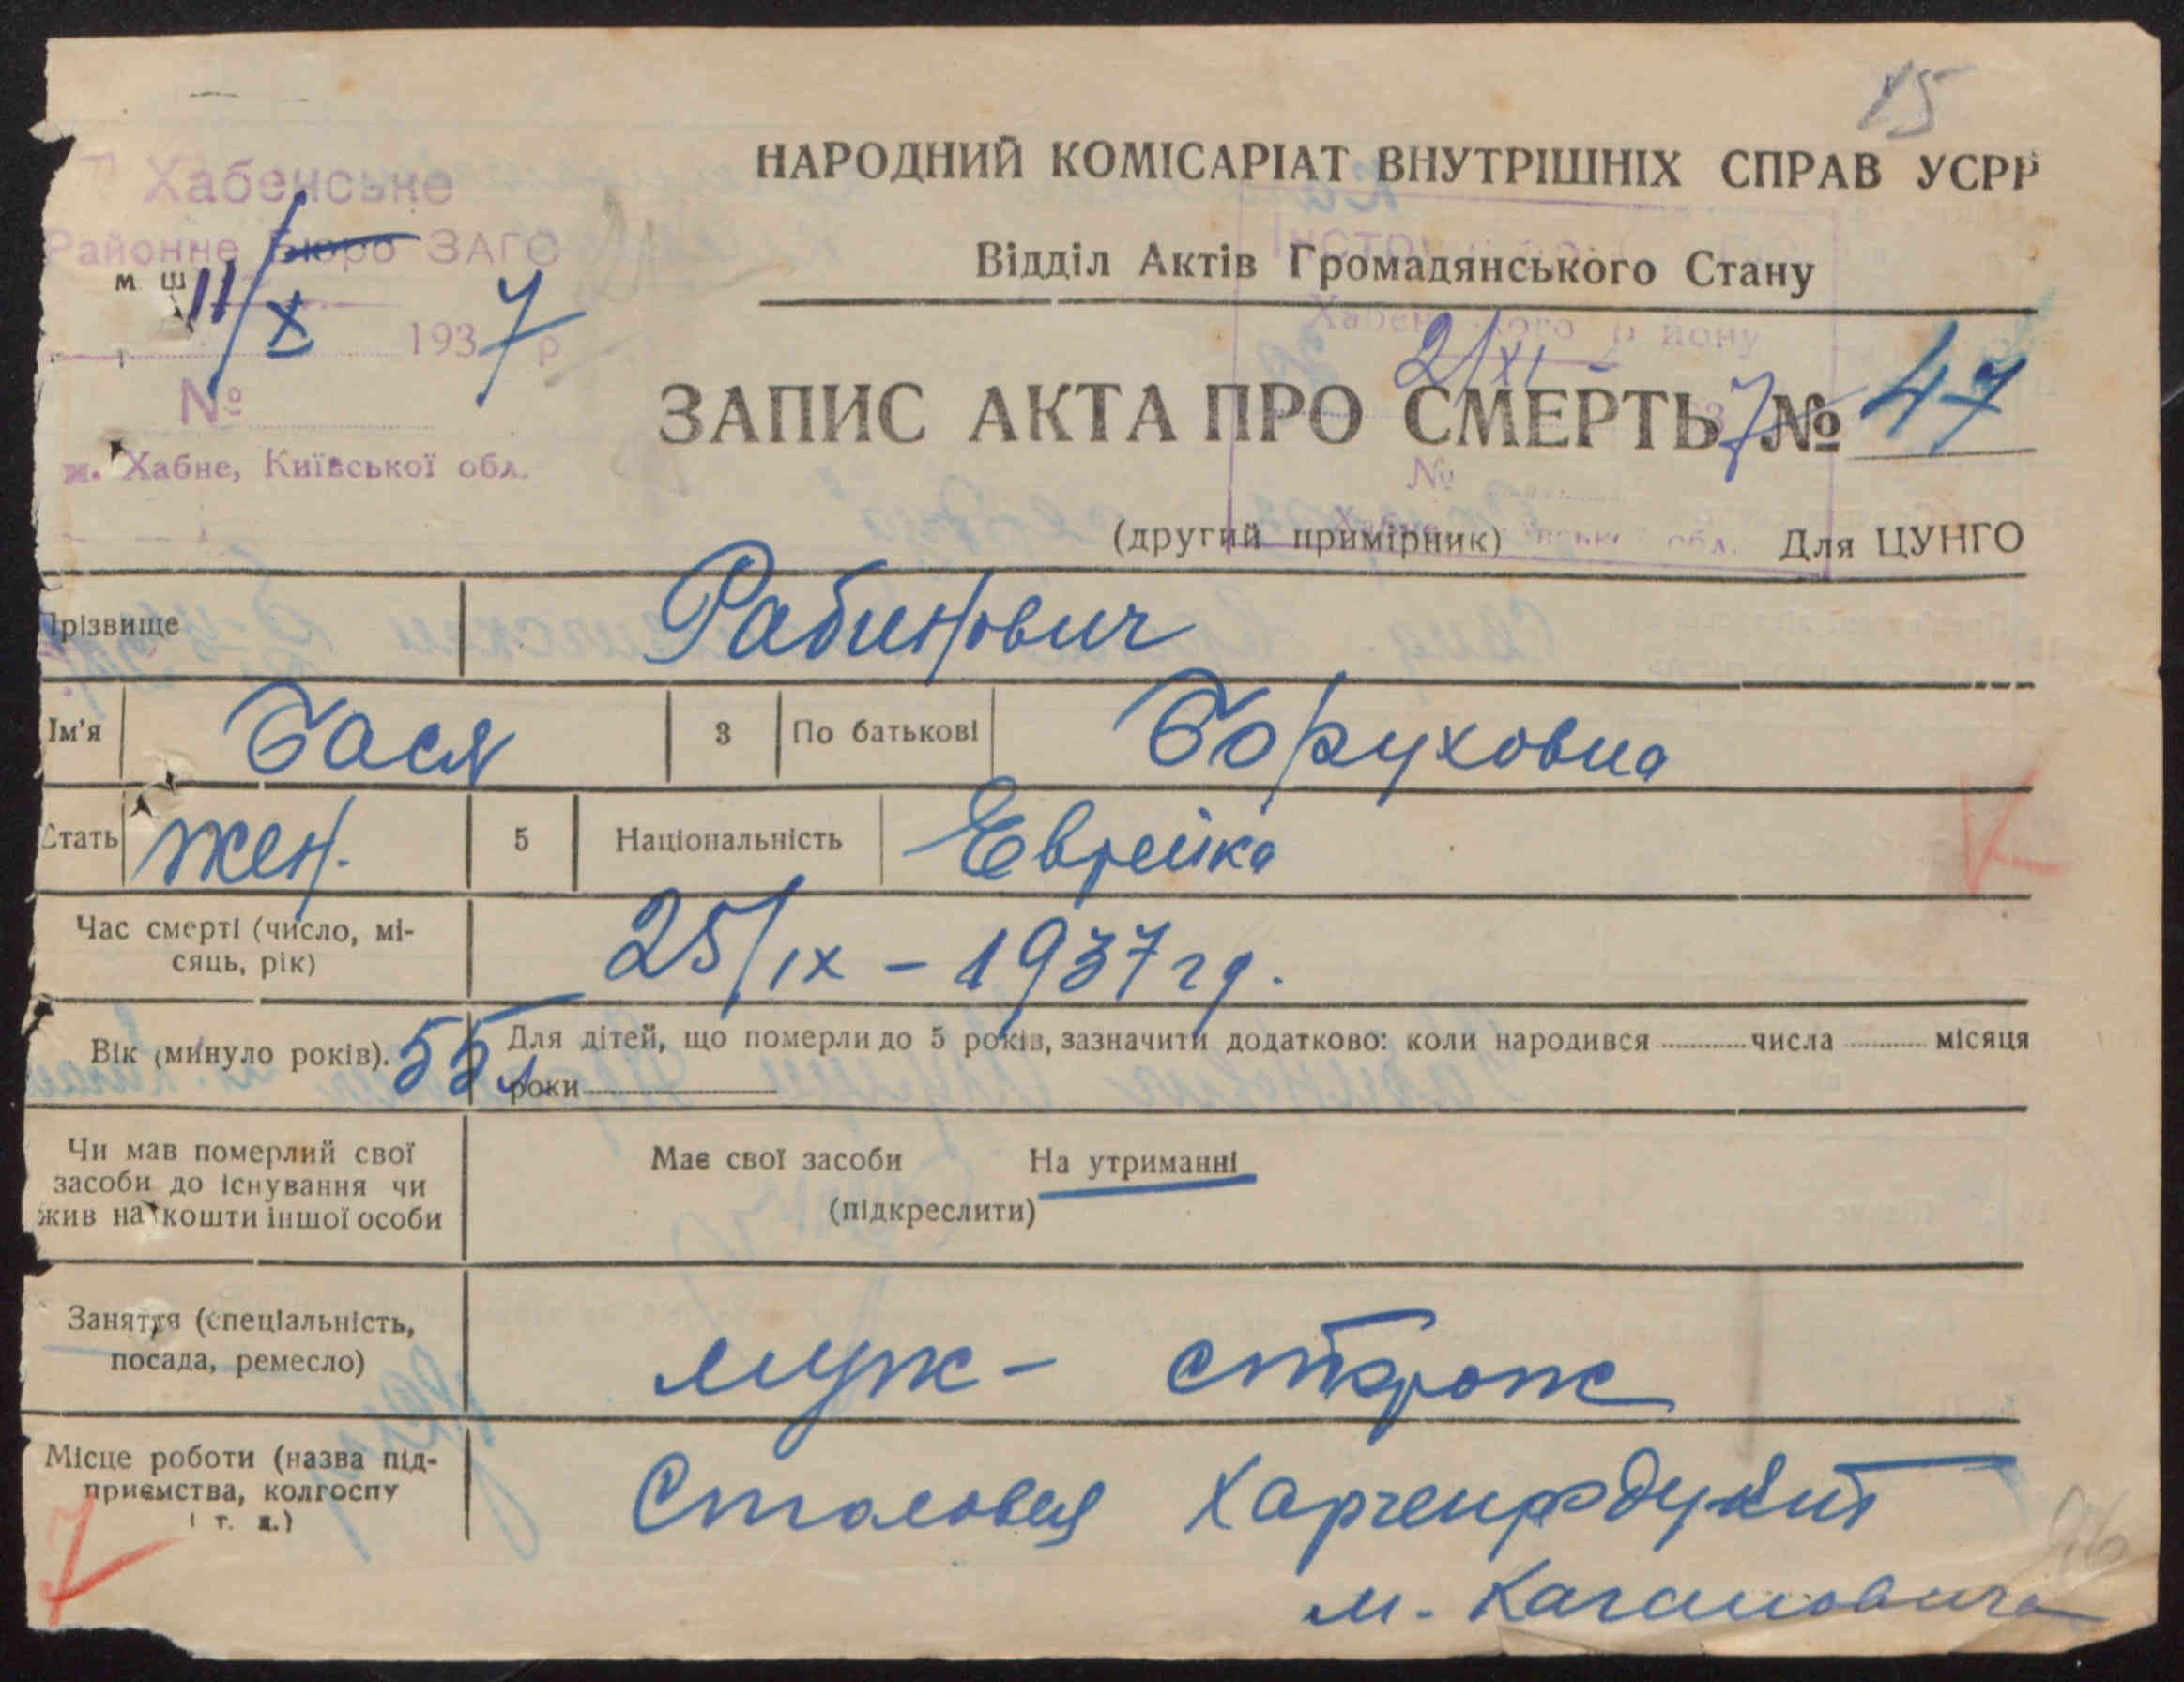 15
НАРОДНИЙ КОМІСАРІАТ ВНУТРІШНІХ СПРАВ УСРР
Відділ Актів Громадянського Стану
Хабенське
Районне Бюро ЗАГС
11/X 1937 р
№
м. Хабне, Київської обл.
Хабенського району
2/XI 37
№
ЗАПИС АКТА ПРО СМЕРТЬ № 47
(другий примірник) Для ЦУНГО
Прізвище Рабинович
Ім'я Бася 3 По батькові Боруховна
Стать жен. 5 Національність Еврейка
Час смерті (число, мі-
сяць, рік)
25/IX - 1937 гд.
Вік (минуло років). 55 Для дітей, що померли до 5 років, зазначити додатково: коли народився числа місяця
роки
Чи мав померлий свої
засоби до існування чи
жив на кошти іншої особи
Має свої засоби На утриманні
(підкреслити)
Заняття (спеціальність,
посада, ремесло)
муж - сторож
Місце роботи (назва під-
приємства, колгоспу
і т. д.)
Столовая Харчепродукт
м. Кагановича